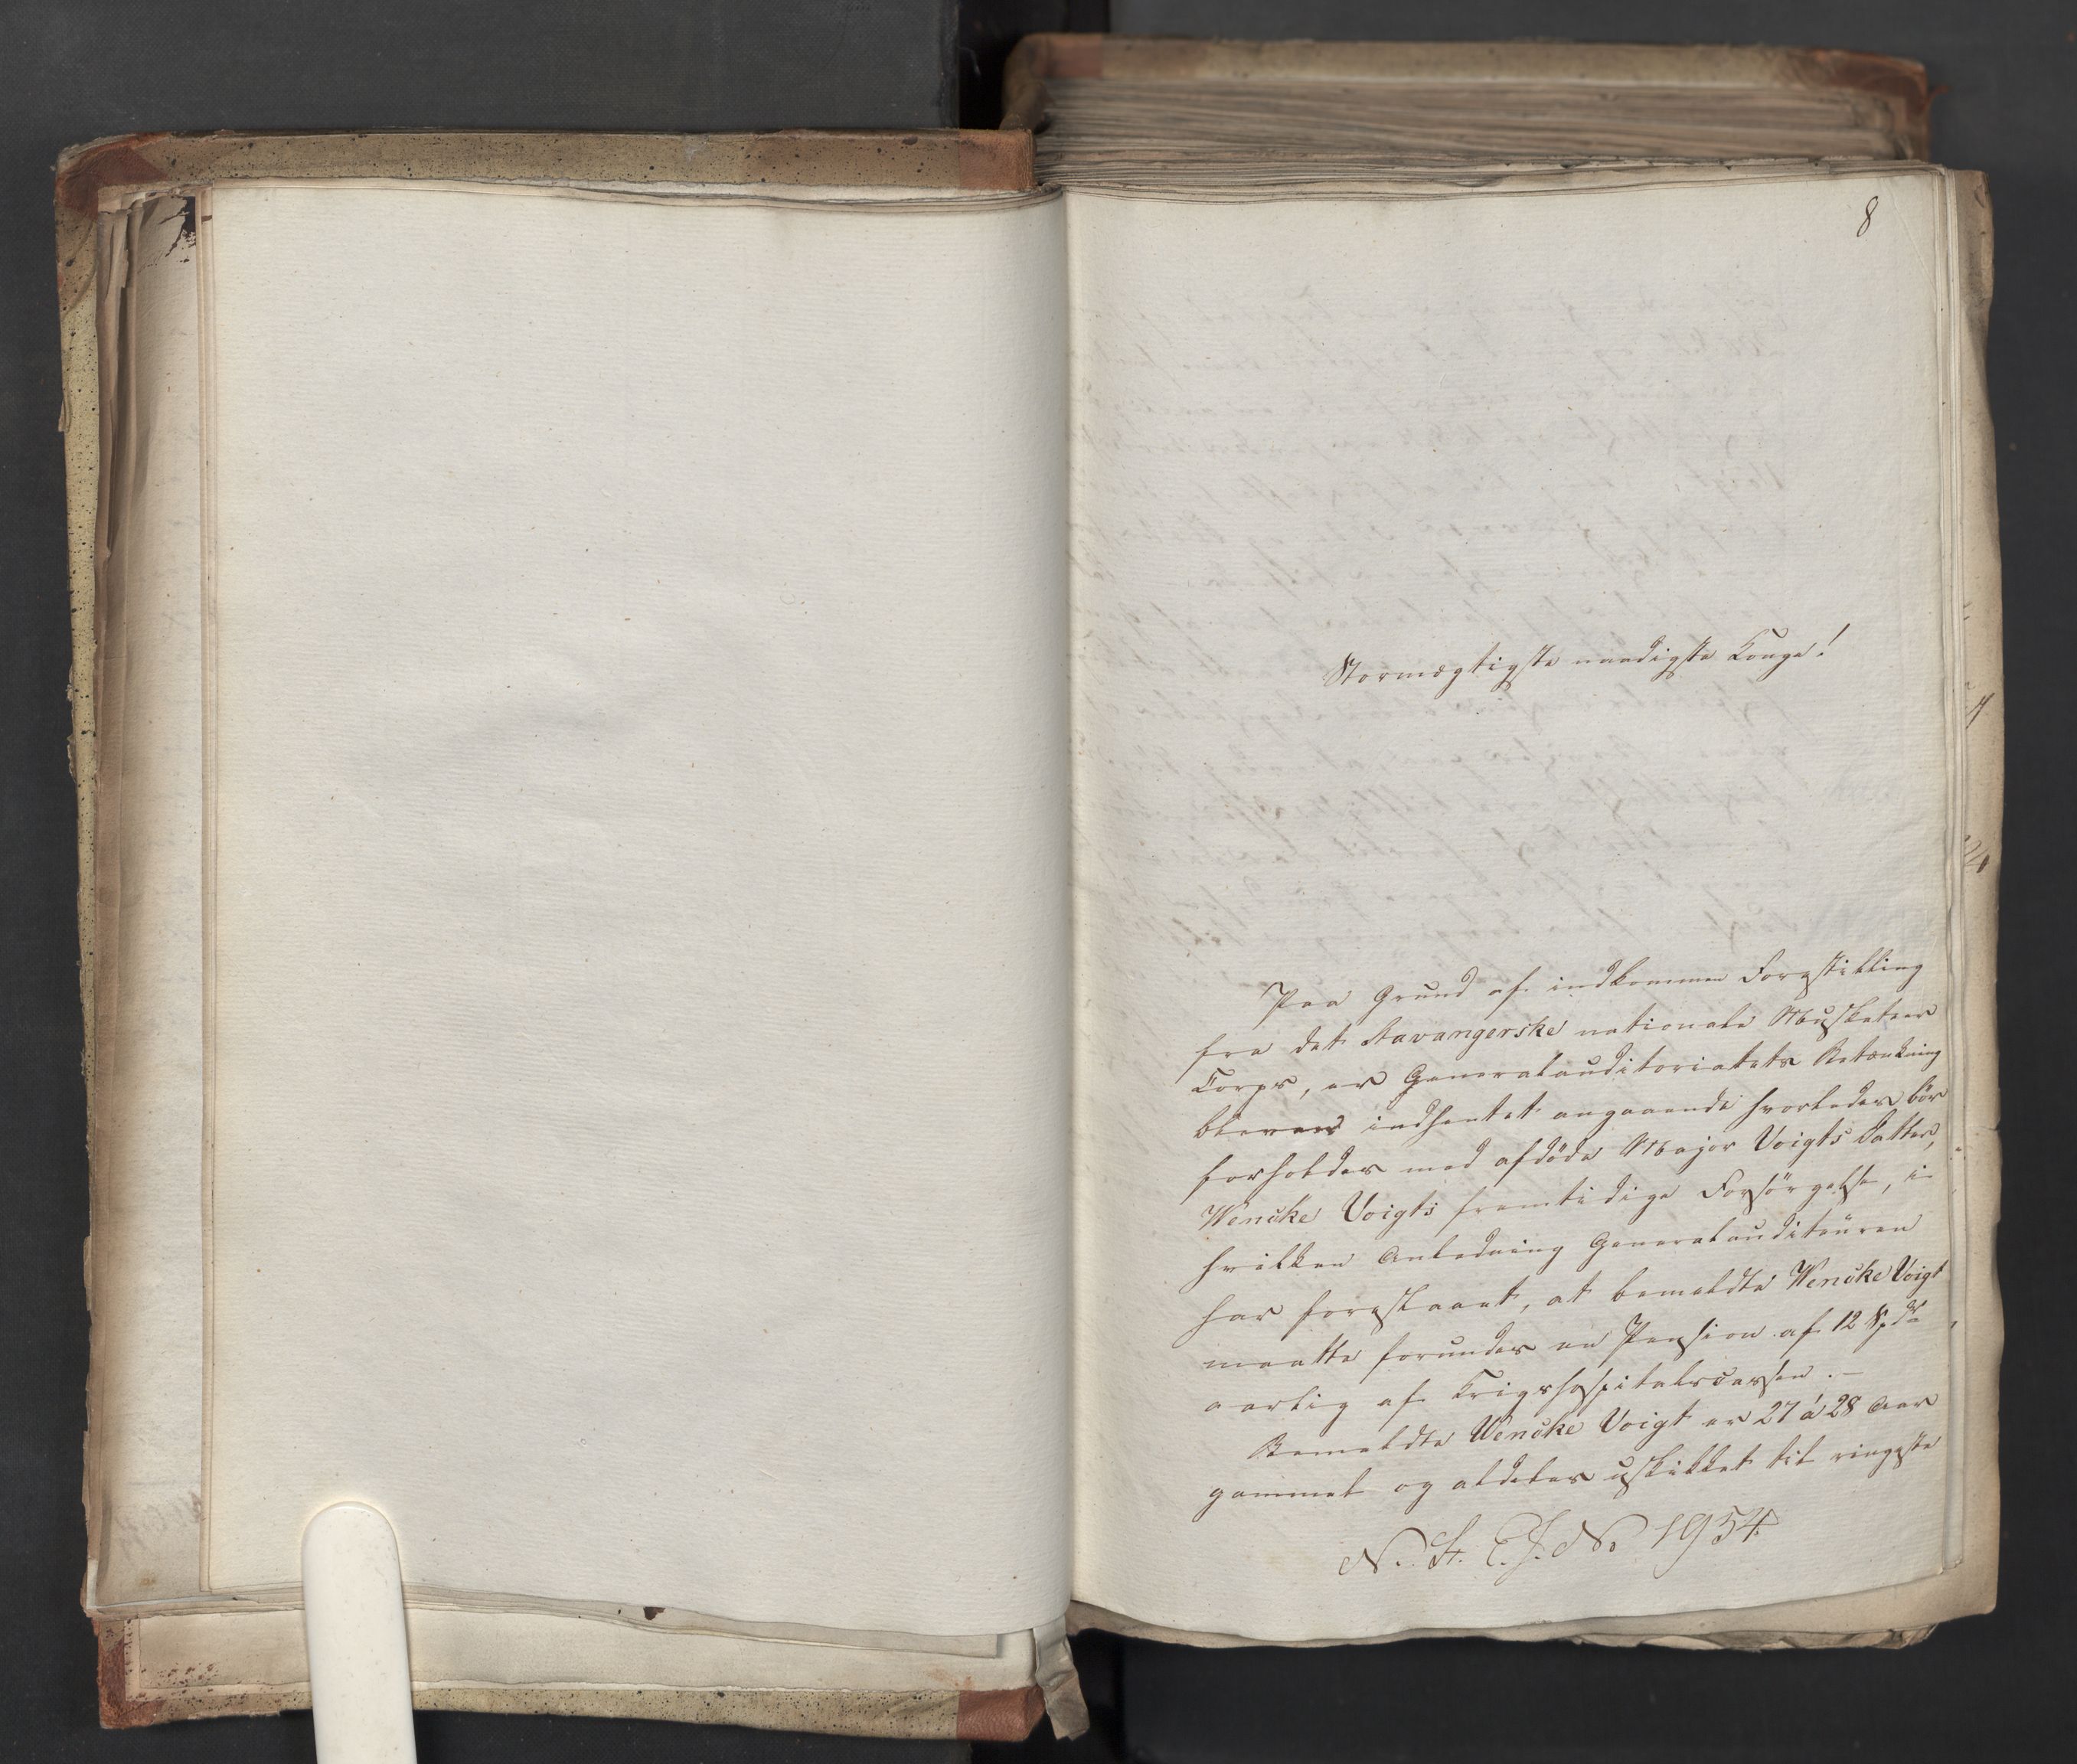 8
Stormægtigste naadigste Konge!
Paa Grund af indkommen Forestilling
fra det Stavangerske nationale Musketeer
Corps, er Generalauditoriatets Betænkning
bleven indhentet angaaende hvorledes bör
forholdes med afdöde Major Voigts Datter,
Wencke Voigts fremtidige Forsörgelse, i
hvilken Anledning Generalauditeuren
har foreslaaet, at bemeldte Wencke Voigt
maatte forundes en Pension af 12 Spdr
aarlig af Krigshospitalscassen.-
Bemeldte Wencke Voigt er 27 á 28 Aar
gammel og aldeles uskikket til ringeste
N. St. C. J. No 1954